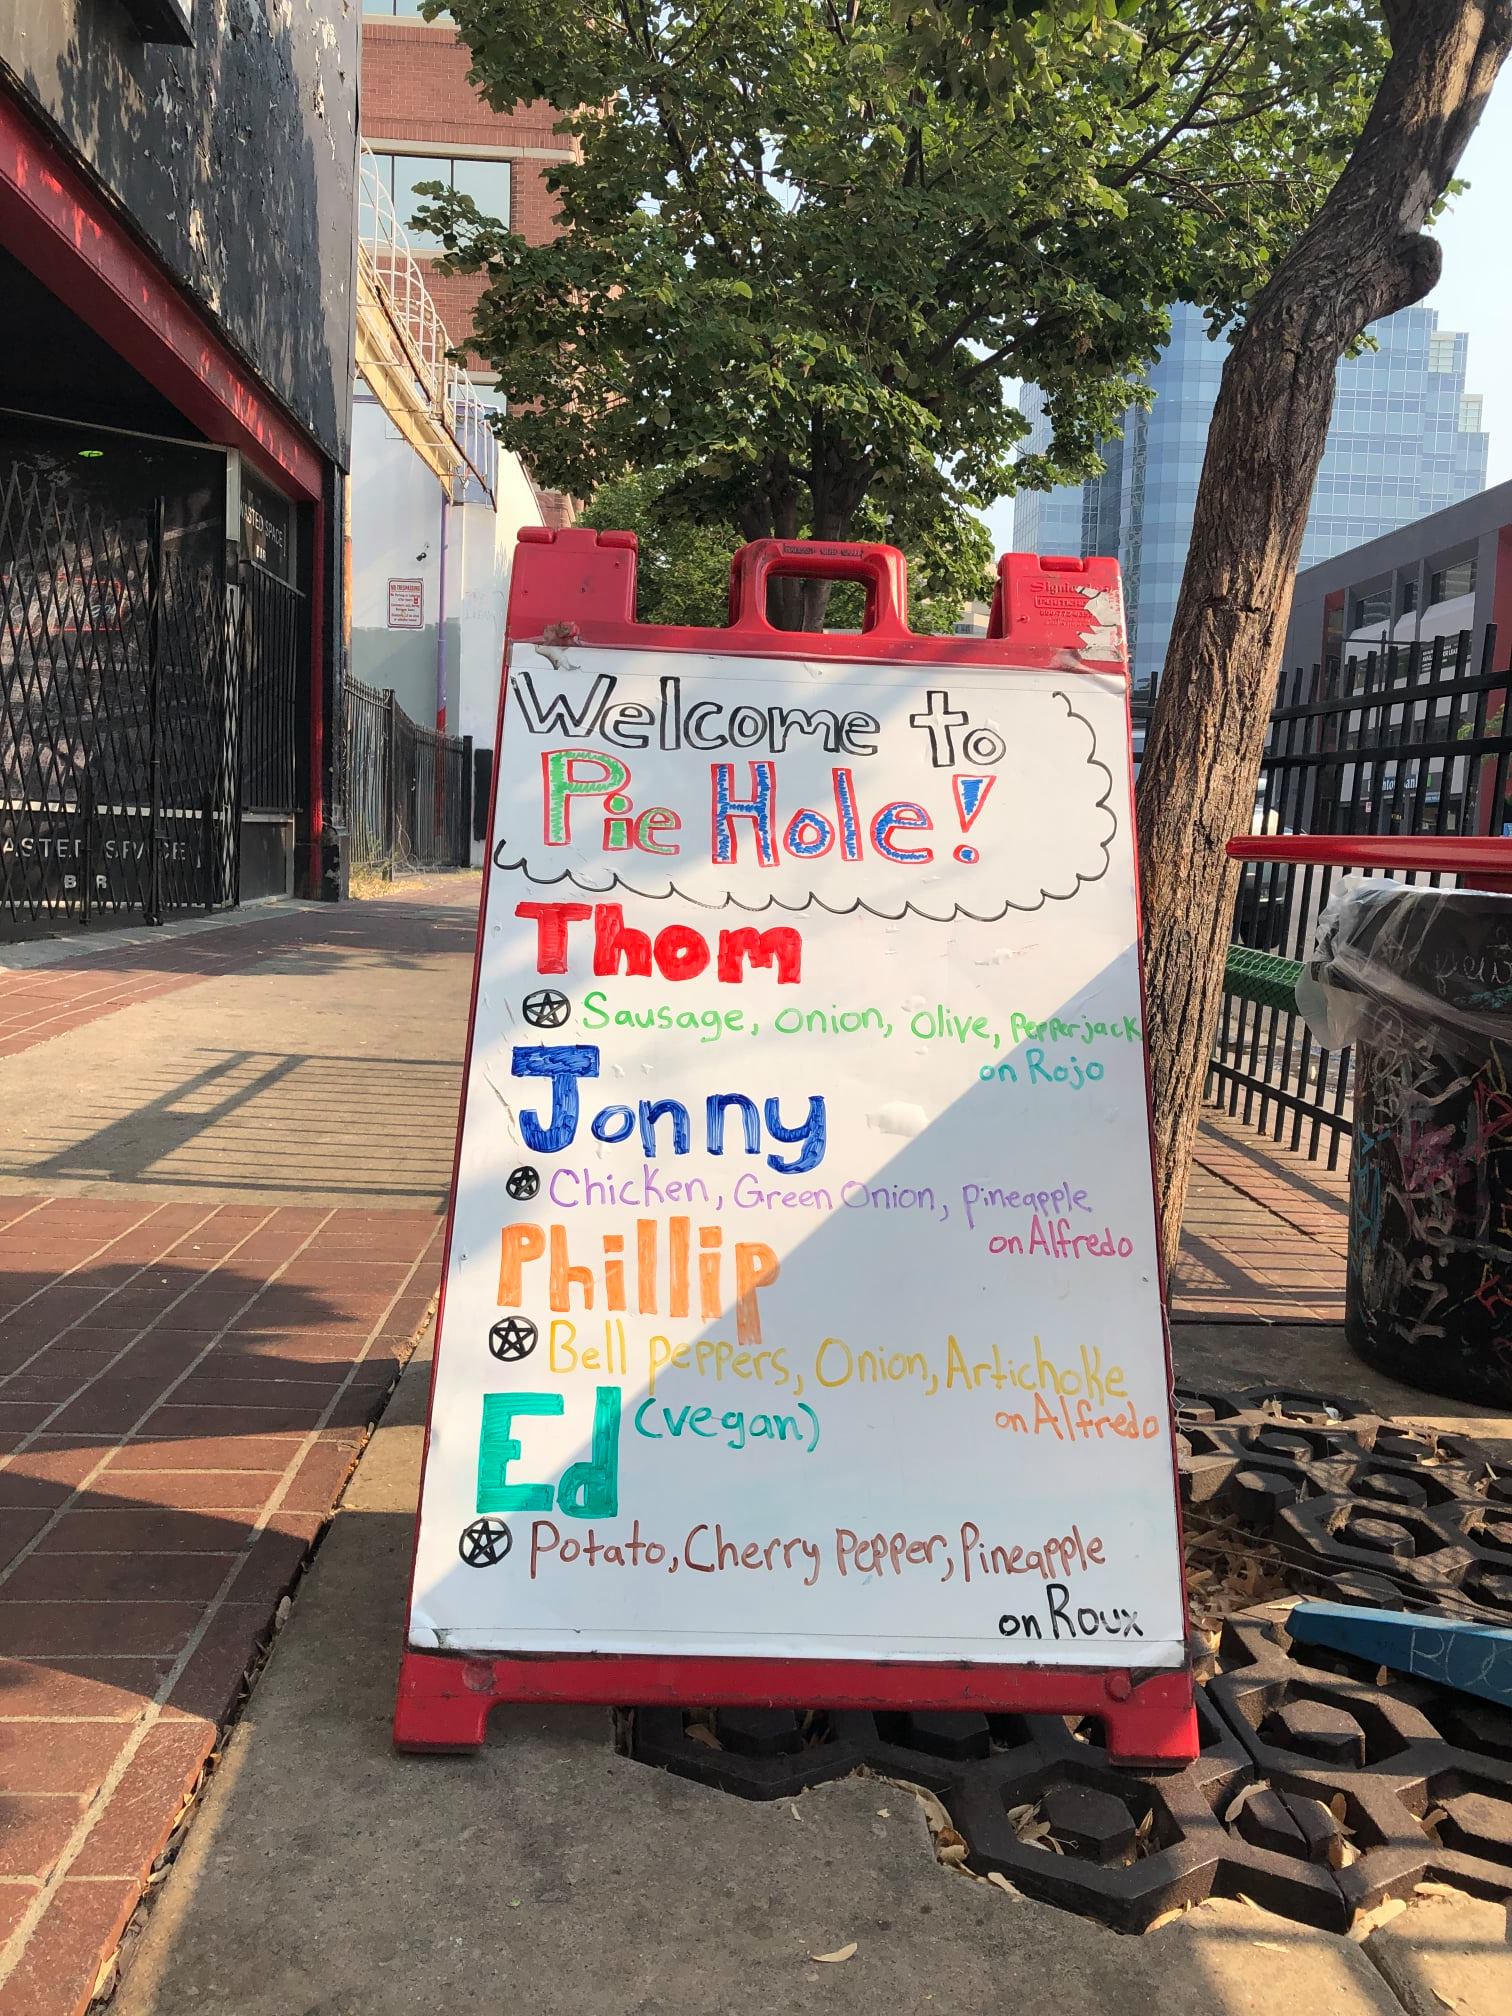 Welcome to
Pie Hole!
Thom
Sausage, onion, olive, pepperjack
on Rojo
Jonny
Chicken, Green Onion, pineapple
on Alfredo
Phillip
Bell peppers, Onion, Artichoke
on Alfredo
Ed (vegan)
Potato, Cherry Pepper, Pineapple
on Roux
NO TRESPASSING